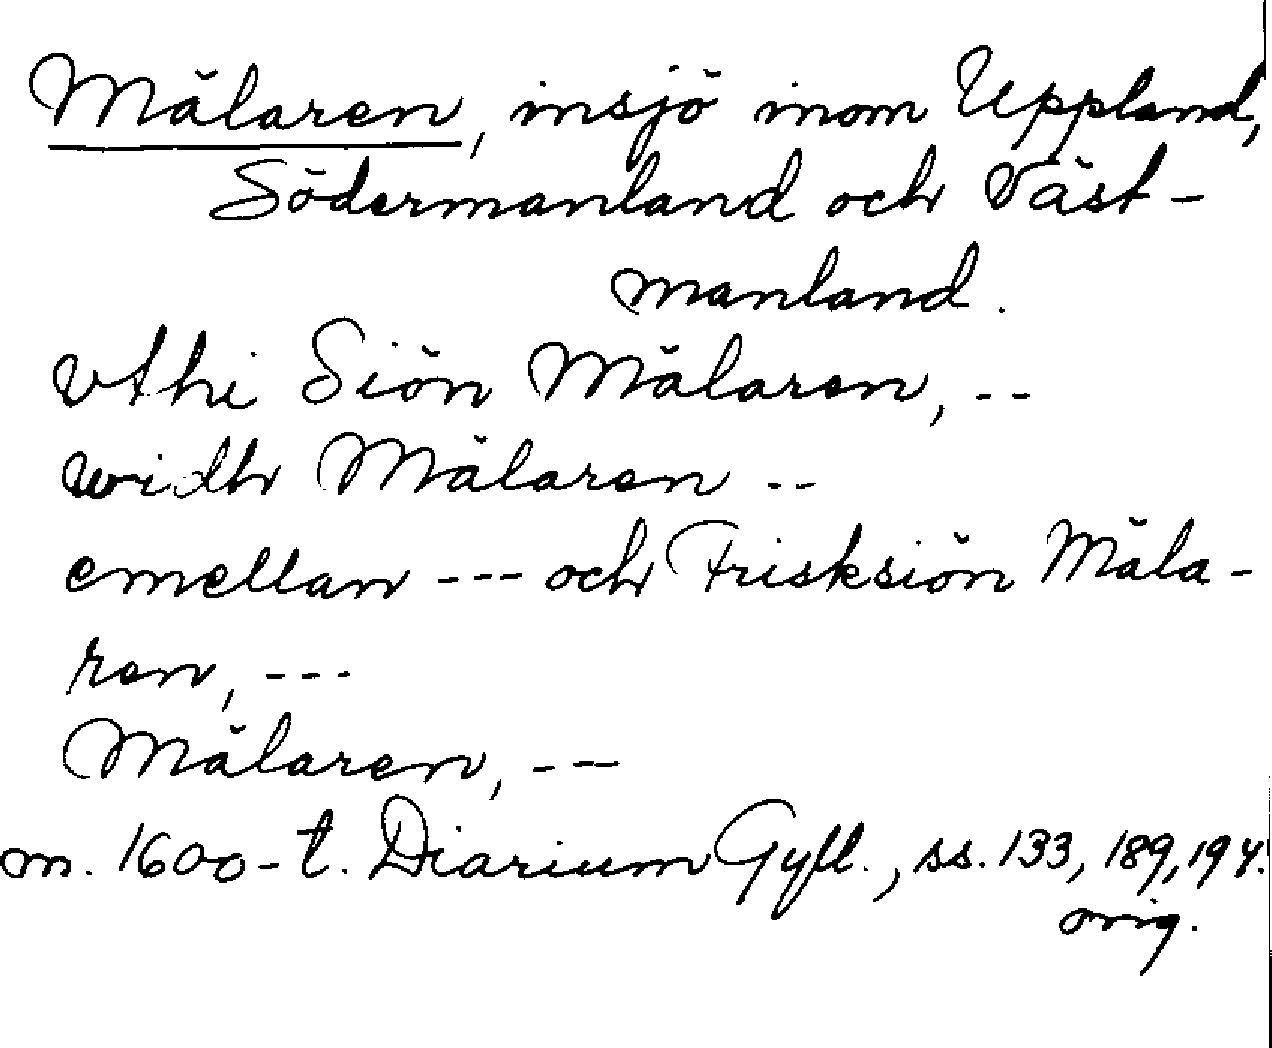 Mälaren, insjö inom Uppland,
Södermanland och Väst-
manland.
vthi Siön Mälaren, --
widh Mälaren --
emellan --- och Frisksiön Mäla-
ren, ---
Mälaren, ---
m. 1600-t. Diarium Gyll., ss. 133, 189, 194.
orig.